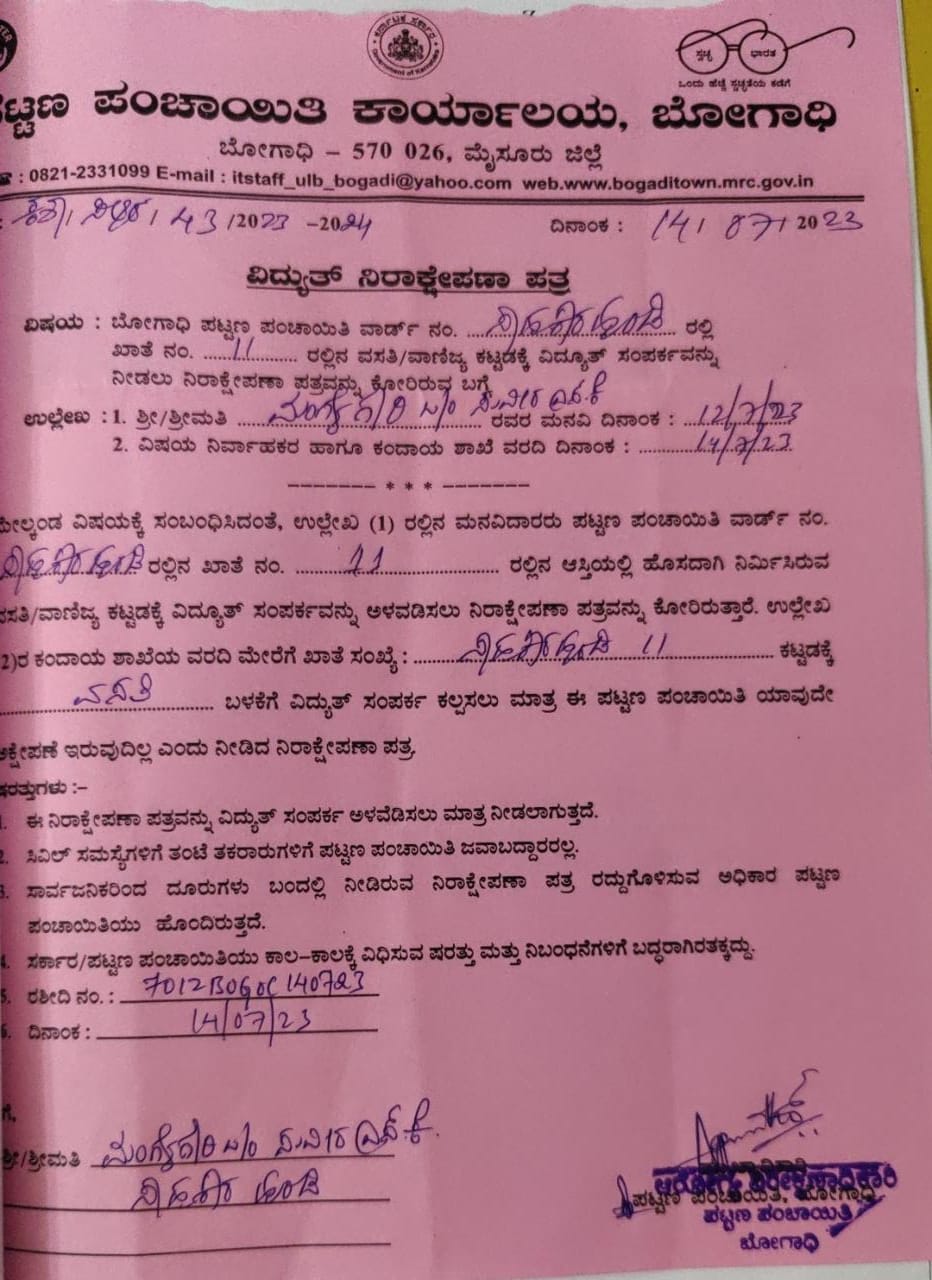 ಕರ್ನಾಟಕ ಸರ್ಕಾರ
Government of Karnataka
ಸ್ವಚ್ಛ ಭಾರತ
ಒಂದು ಹೆಜ್ಜೆ ಸ್ವಚ್ಛತೆಯ ಕಡೆಗೆ
ಪಟ್ಟಣ ಪಂಚಾಯಿತಿ ಕಾರ್ಯಾಲಯ, ಬೋಗಾಧಿ
ಬೋಗಾಧಿ – 570 026, ಮೈಸೂರು ಜಿಲ್ಲೆ
: 0821-2331099 E-mail : itstaff_ulb_bogadi@yahoo.com web.www.bogaditown.mrc.gov.in
43 /2023 -2024 ದಿನಾಂಕ : 14/ 07/ 2023
ವಿದ್ಯುತ್ ನಿರಾಕ್ಷೇಪಣಾ ಪತ್ರ
ವಿಷಯ : ಬೋಗಾಧಿ ಪಟ್ಟಣ ಪಂಚಾಯಿತಿ ವಾರ್ಡ್ ನಂ. ರಲ್ಲಿ
ಖಾತೆ ನಂ. 11 ರಲ್ಲಿನ ವಸತಿ/ವಾಣಿಜ್ಯ ಕಟ್ಟಡಕ್ಕೆ ವಿದ್ಯೂತ್ ಸಂಪರ್ಕವನ್ನು
ನೀಡಲು ನಿರಾಕ್ಷೇಪಣಾ ಪತ್ರವನ್ನು ಕೋರಿರುವ ಬಗ್ಗೆ
ಉಲ್ಲೇಖ : 1. ಶ್ರೀ/ಶ್ರೀಮತಿ ರವರ ಮನವಿ ದಿನಾಂಕ : 12/7/23
2. ವಿಷಯ ನಿರ್ವಾಹಕರ ಹಾಗೂ ಕಂದಾಯ ಶಾಖೆ ವರದಿ ದಿನಾಂಕ : 14/7/23
------- * * * -------
ಮೇಲ್ಕಂಡ ವಿಷಯಕ್ಕೆ ಸಂಬಂಧಿಸಿದಂತೆ, ಉಲ್ಲೇಖ (1) ರಲ್ಲಿನ ಮನವಿದಾರರು ಪಟ್ಟಣ ಪಂಚಾಯಿತಿ ವಾರ್ಡ್ ನಂ.
ರಲ್ಲಿನ ಖಾತೆ ನಂ. 11 ರಲ್ಲಿನ ಆಸ್ತಿಯಲ್ಲಿ ಹೊಸದಾಗಿ ನಿರ್ಮಿಸಿರುವ
ವಸತಿ/ವಾಣಿಜ್ಯ ಕಟ್ಟಡಕ್ಕೆ ವಿದ್ಯೂತ್ ಸಂಪರ್ಕವನ್ನು ಅಳವಡಿಸಲು ನಿರಾಕ್ಷೇಪಣಾ ಪತ್ರವನ್ನು ಕೋರಿರುತ್ತಾರೆ. ಉಲ್ಲೇಖ
2)ರ ಕಂದಾಯ ಶಾಖೆಯ ವರದಿ ಮೇರೆಗೆ ಖಾತೆ ಸಂಖ್ಯೆ : 11 ಕಟ್ಟಡಕ್ಕೆ
ವಸತಿ ಬಳಕೆಗೆ ವಿದ್ಯುತ್ ಸಂಪರ್ಕ ಕಲ್ಪಸಲು ಮಾತ್ರ ಈ ಪಟ್ಟಣ ಪಂಚಾಯಿತಿ ಯಾವುದೇ
ಆಕ್ಷೇಪಣೆ ಇರುವುದಿಲ್ಲ ಎಂದು ನೀಡಿದ ನಿರಾಕ್ಷೇಪಣಾ ಪತ್ರ.
ಷರತ್ತುಗಳು :–
1. ಈ ನಿರಾಕ್ಷೇಪಣಾ ಪತ್ರವನ್ನು ವಿದ್ಯುತ್ ಸಂಪರ್ಕ ಅಳವೆಡಿಸಲು ಮಾತ್ರ ನೀಡಲಾಗುತ್ತದೆ.
2. ಸಿವಿಲ್ ಸಮಸ್ಯೆಗಳಿಗೆ ತಂಟೆ ತಕರಾರುಗಳಿಗೆ ಪಟ್ಟಣ ಪಂಚಾಯಿತಿ ಜವಾಬದ್ದಾರರಲ್ಲ.
3. ಸಾರ್ವಜನಿಕರಿಂದ ದೂರುಗಳು ಬಂದಲ್ಲಿ ನೀಡಿರುವ ನಿರಾಕ್ಷೇಪಣಾ ಪತ್ರ ರದ್ದುಗೊಳಿಸುವ ಅಧಿಕಾರ ಪಟ್ಟಣ
ಪಂಚಾಯಿತಿಯು ಹೊಂದಿರುತ್ತದೆ.
4. ಸರ್ಕಾರ/ಪಟ್ಟಣ ಪಂಚಾಯಿತಿಯು ಕಾಲ–ಕಾಲಕ್ಕೆ ವಿಧಿಸುವ ಷರತ್ತು ಮತ್ತು ನಿಬಂಧನೆಗಳಿಗೆ ಬದ್ಧರಾಗಿರತಕ್ಕದ್ದು.
5. ರಶೀದಿ ನಂ. : 7012BOGOC140723
6. ದಿನಾಂಕ : 14/07/23
ಗೆ,
ಶ್ರೀ/ಶ್ರೀಮತಿ
ಪಟ್ಟಣ ಪಂಚಾಯಿತಿ, ಬೋಗಾಧಿ
ಪಟ್ಟಣ ಪಂಚಾಯಿತಿ
ಬೋಗಾಧಿ